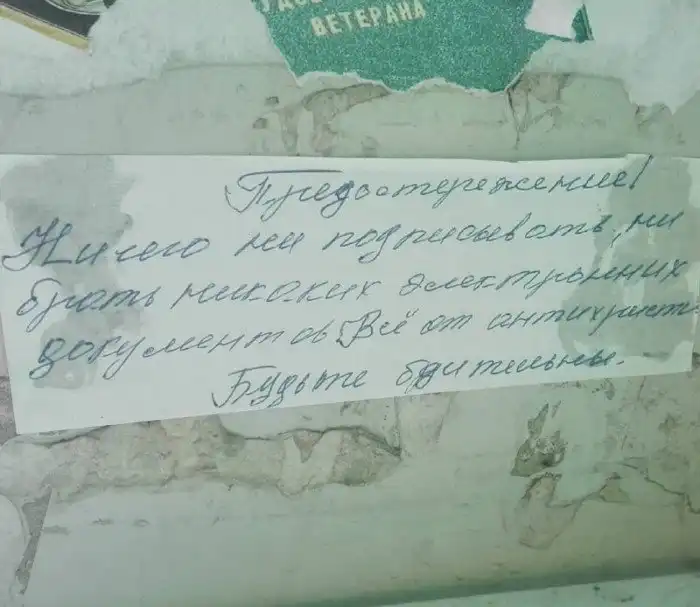 ВЕТЕРАНА
Предостережение!
Ничего ни подписывать, ни
брать никаких электронних
документов. Всё от антихрист.
Будьте бдительны.